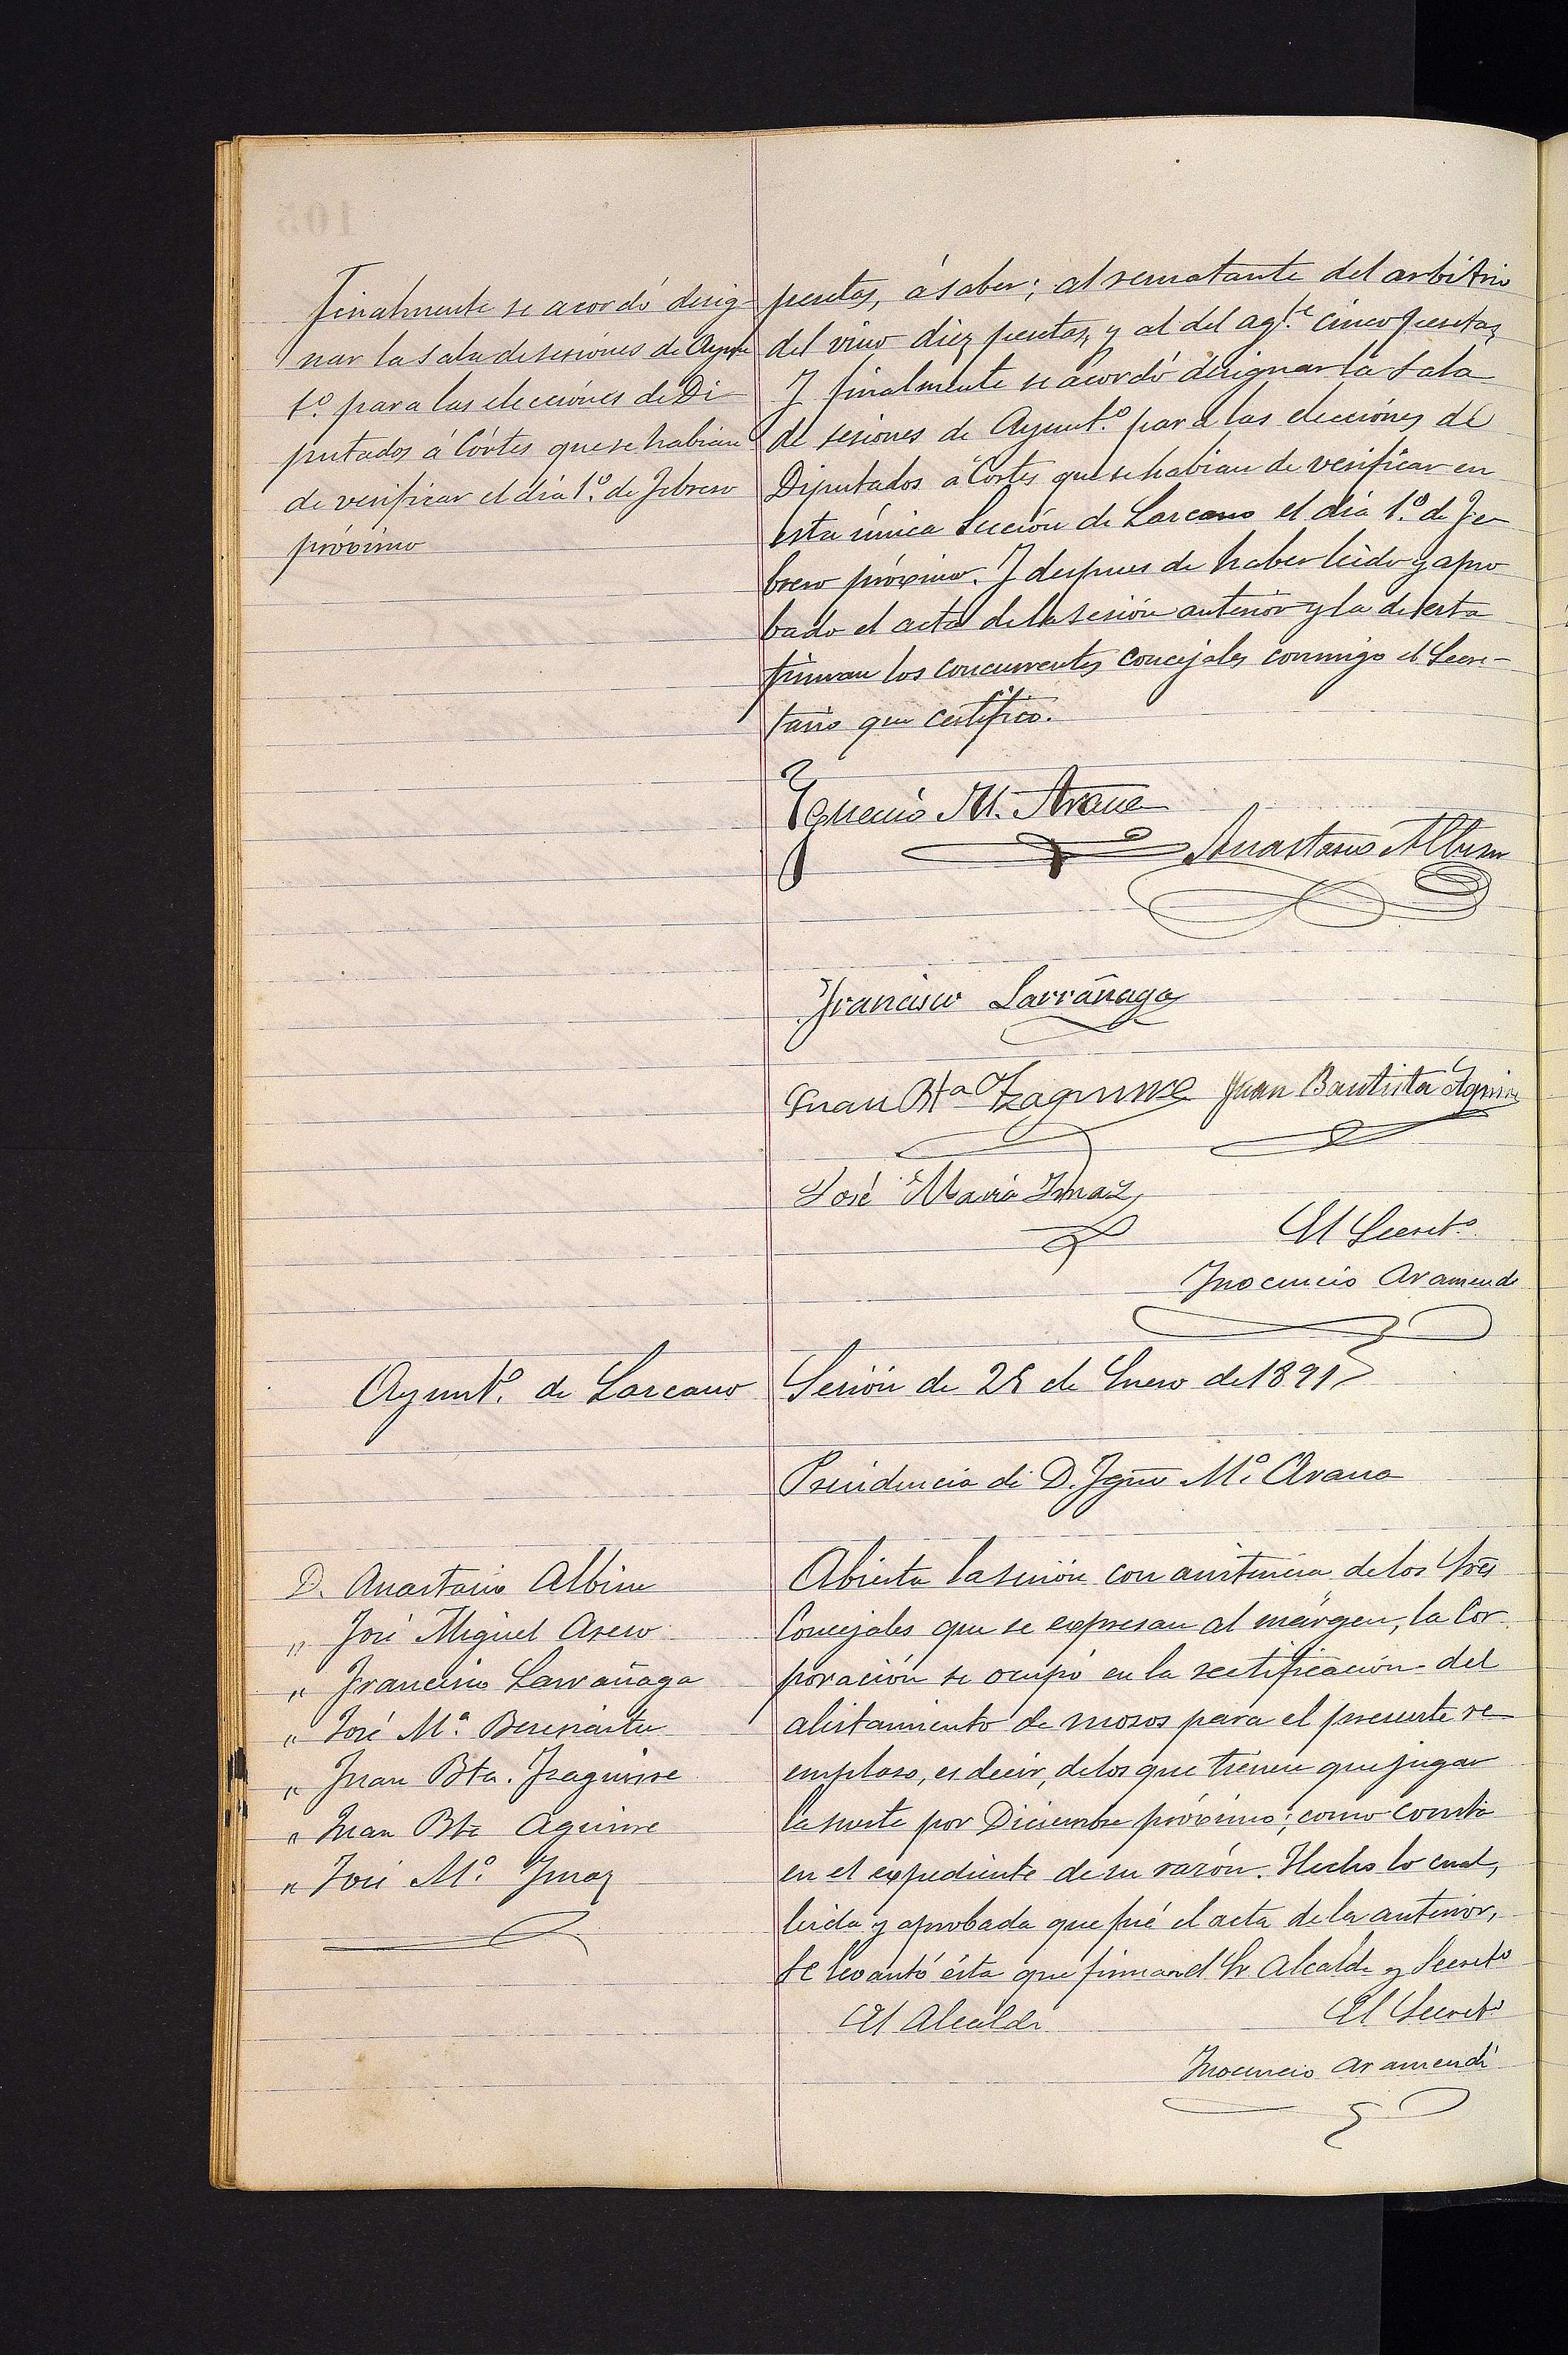 Finalmente se acordó desig-
nar la sala de sesiones de Ayun
t.º para las elecciónes de Di-
putados á Córtes que se habian
de verificar el dia 1.º de Febrero
próximo
pesetas, á saber; al rematante del arbitrio
del vino diez pesetas, y al del ag.te cinco pesetas
Y finalmente se acordó designar la Sala
de sesiones de Ayunt.º para las elecciónes de
Diputados á Cortes que se habian de verificar en
esta única Sección de Lazcano el dia 1.º de Fe-
brero próximo. Y despues de haber leido y apro
bado el acta de la sesión anterior y la de esta
firman los concurrentes concejales conmigo el Secre-
tario que certifico.
Ygnacio M. Arana
Anastasio Albisu
Francisco Larrañaga
Juan Bta Yzaguirre Juan Bautista Aguirre
José Maria Imaz
El Secret.º
Inocencio Aramendi
Ayunt.º de Lazcano
Sesión de 25 de Enero de 1891
Presidencia de D. Ign.º M.ª Arana
D. Anastasio Albisu
" José Miguel Aseso
" Francisco Larrañaga
" José M.ª Beresiartu
" Juan Bta. Izaguirre
" Juan Bta Aguirre
" José M.ª Imaz
Abierta la sesión con asistencia de los Sres
Concejales que se expresan al márgen, la Cor-
poración se ocupó en la rectificación del
alistamiento de mozos para el presente re-
emplazo, es decir, de los que tienen que jugar
la suerte por Diciembre próximo; como consta
en el expediente de su razón. Hecho lo cual,
leida y aprobada que fué el acta de la anterior,
se levantó ésta que firman el Sr Alcalde y Secret.º
El Alcalde
El Secret.º
Inocencio Aramendi